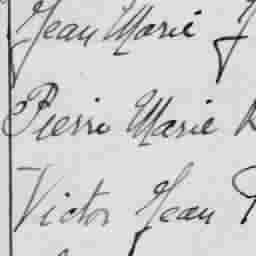 Jean Marie J
Pierre Marie
Victor Jean